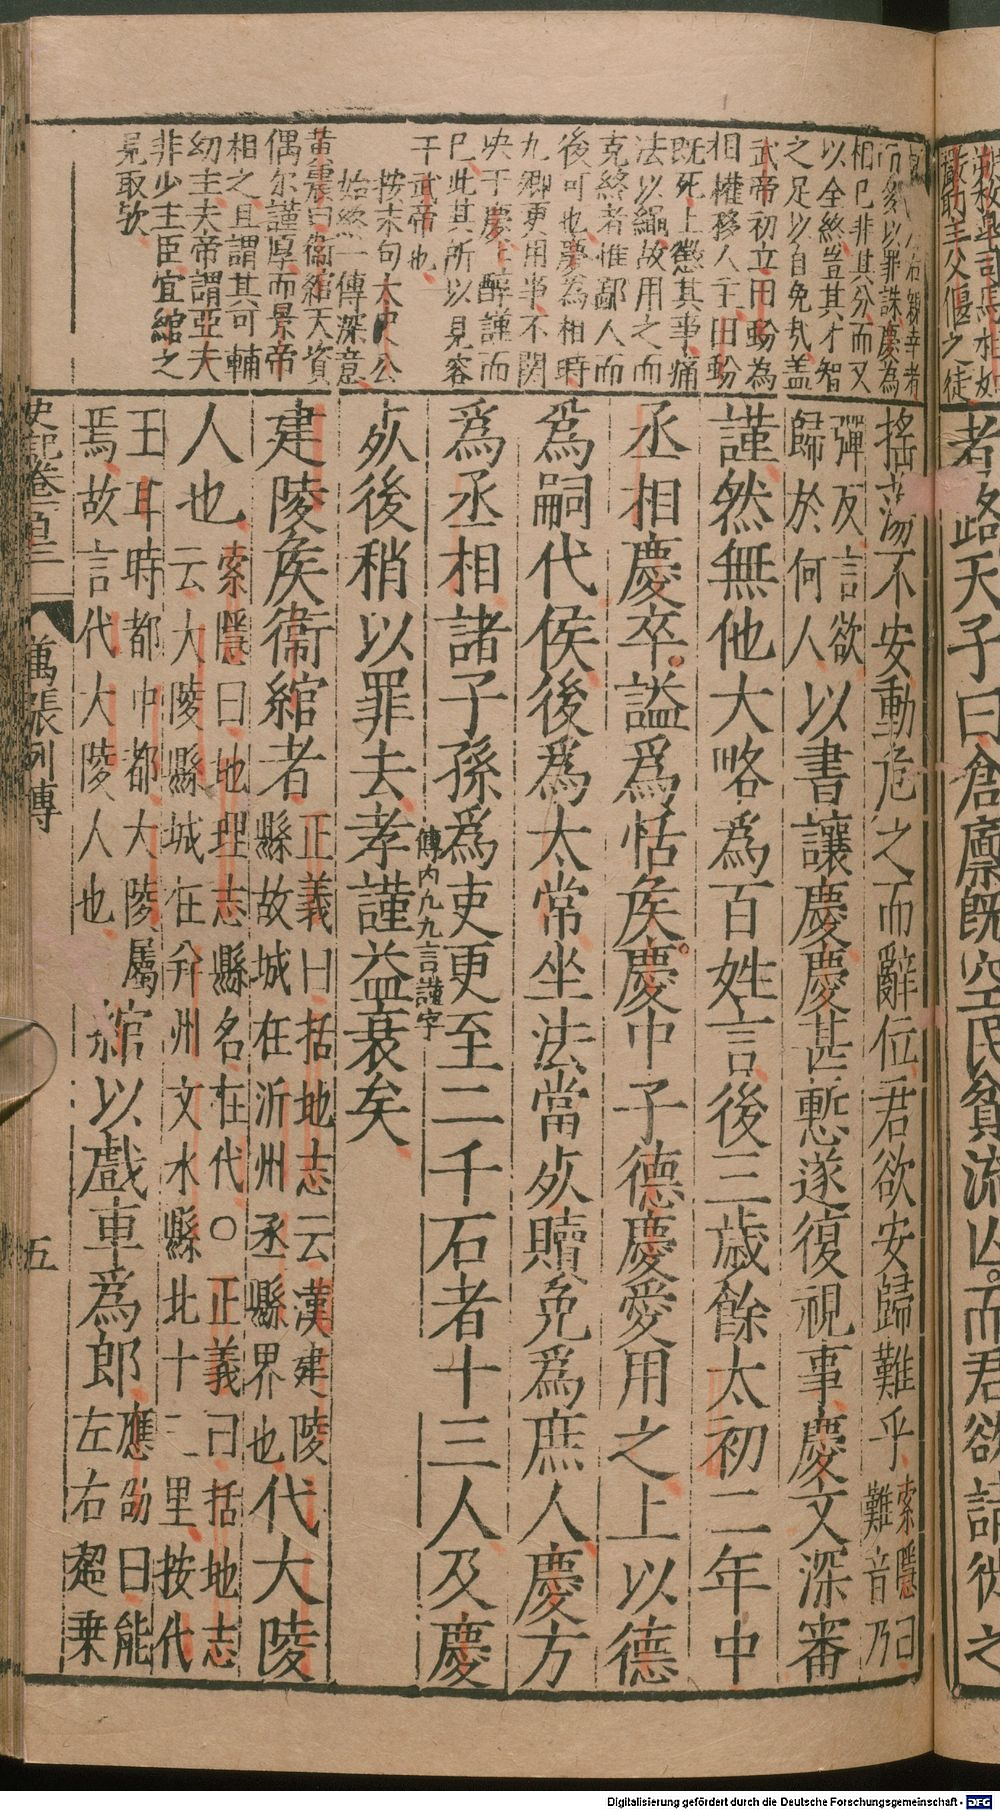 嚴助主父偃之徒
者路天子曰倉廩既空民貧流亡而君欲請徙之
而多以罪誅慶為
相已非其分而又
以全終豈其才智
之足以自免㢤盖
武帝初立田蚡為
相權移人主田蚡
既死上懲其事痛
法以繩故用之而
克終者惟鄙人而
後可也慶為相時
九卿更用事不関
决于慶慶醇謹而
已此其所以見容
于武帝也
按末句太史公
始終一傳深意
黃震曰衞綰天資
偶尔謹厚而景帝
相之且謂其可輔
幼主夫帝謂亞夫
非少主臣宜綰之
見取欤
搖蕩不安動危之而辭位君欲安歸難乎
索隱曰
難音乃
彈反言欲
歸於何人
以書讓慶慶甚慙遂復視事慶文深審
謹然無他大略爲百姓言後三歲餘太初二年中
丞相慶卒謚爲恬矦慶中子德慶愛用之上以德
爲嗣代侯後爲太常坐法當死贖免爲庶人慶方
爲丞相諸子孫爲吏更至二千石者十三人及慶
傳内凡九言謹字
死後稍以罪去孝謹益衰矣
建陵矦衞綰者
正義曰括地志云漢建陵
縣故城在沂州丞縣界也
代大陵
人也
索隱曰地理志縣名在代○正義曰括地志
云大陵縣城在并州文水縣北十二里按代
王耳時都中都大陵屬
焉故言代大陵人也
綰以戲車爲郎
應劭曰能
左右超乗
史記卷百三
萬張列傳
五
Digitalisierung gefördert durch die Deutsche Forschungsgemeinschaft - DFG